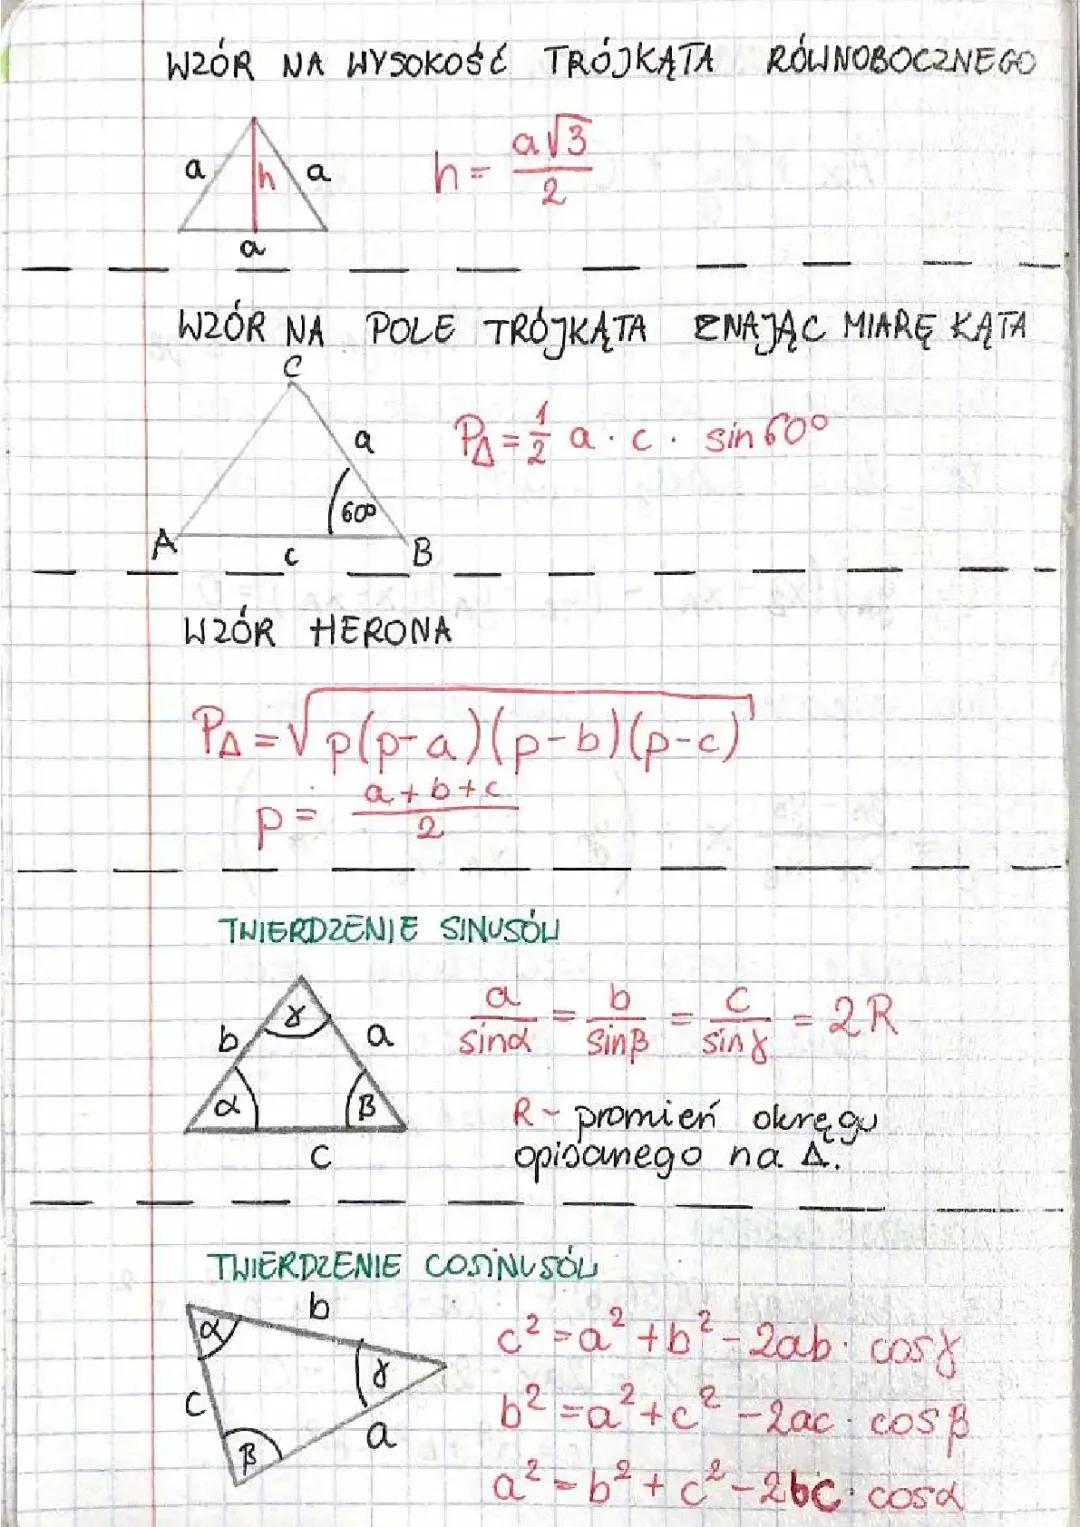 WZÓR NA WYSOKOŚĆ TRÓJKĄTA RÓWNOBOCZNEGO
a h a
a
h = a√3/2
WZÓR NA POLE TRÓJKĄTA ZNAJĄC MIARĘ KĄTA
C
a
60°
A c B
P△ = 1/2 a · c · sin 60°
WZÓR HERONA
P△ = √p(p-a)(p-b)(p-c)
p = a+b+c/2
TWIERDZENIE SINUSÓW
γ
b a
α β
c
a/sinα = b/sinβ = c/sinγ = 2R
R - promień okręgu
opisanego na △.
TWIERDZENIE COSINUSÓW
b
α
γ
c
a
β
c² = a² + b² - 2ab · cosγ
b² = a² + c² - 2ac · cosβ
a² = b² + c² - 2bc · cosα